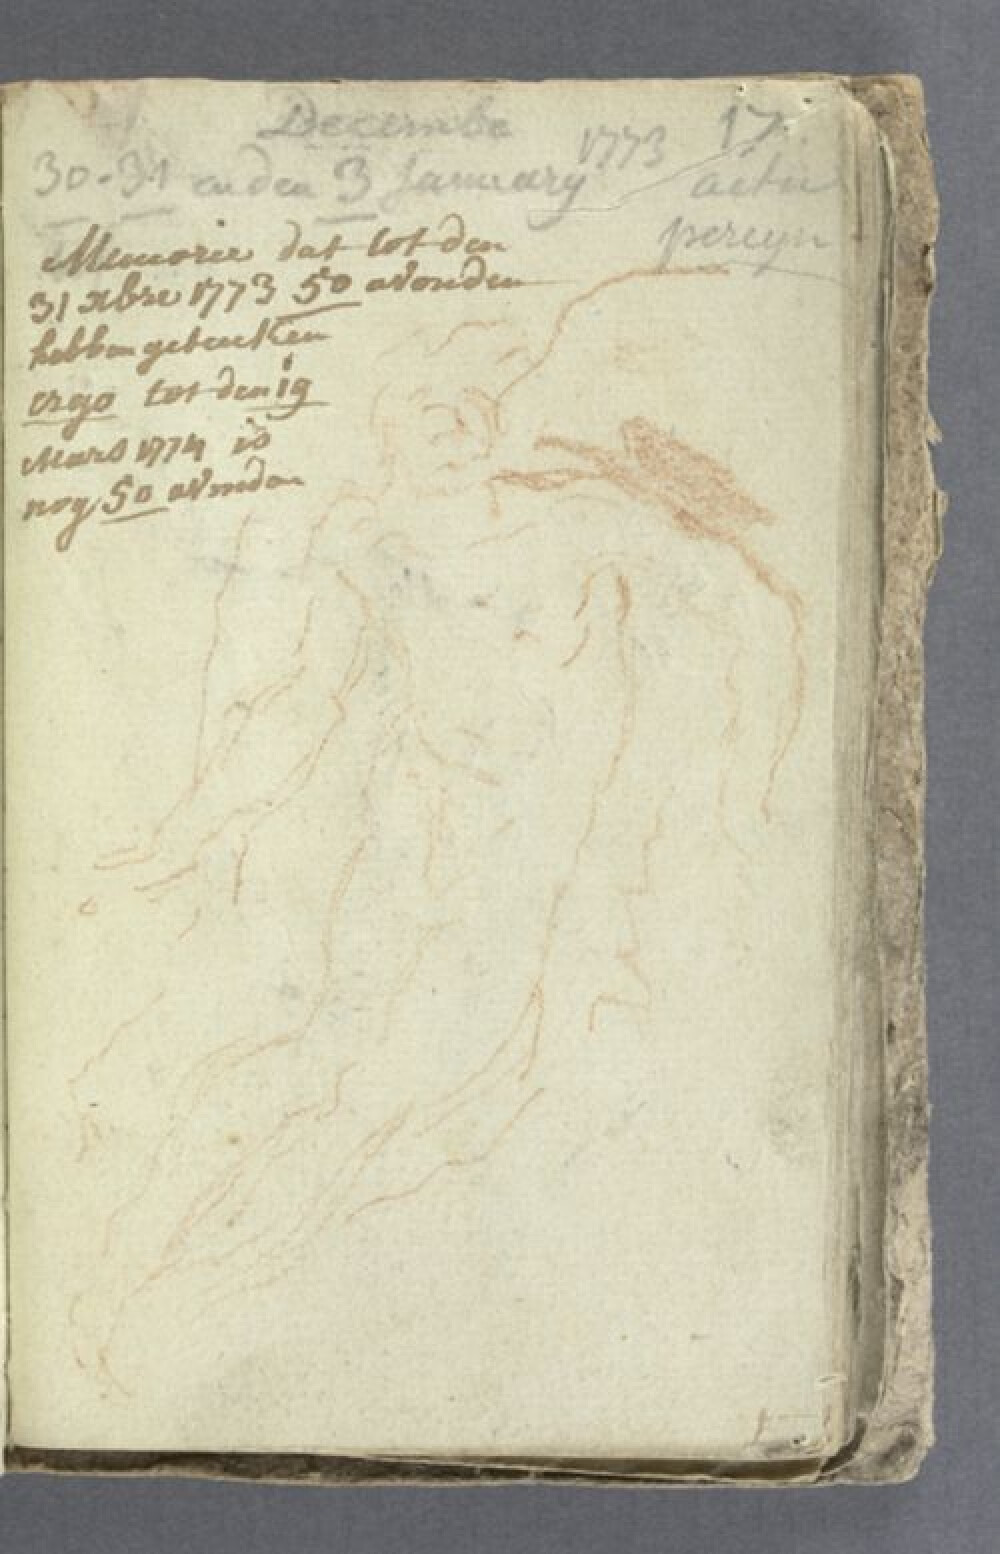 Decembe 1773 17
30-31 en den 3 January actie
pereyn
Memorie dat tot den
31 xbre 1773 50 avonden
hebben geteeken
ergo tot den 19
Mars 1774 is
nog 50 avonden